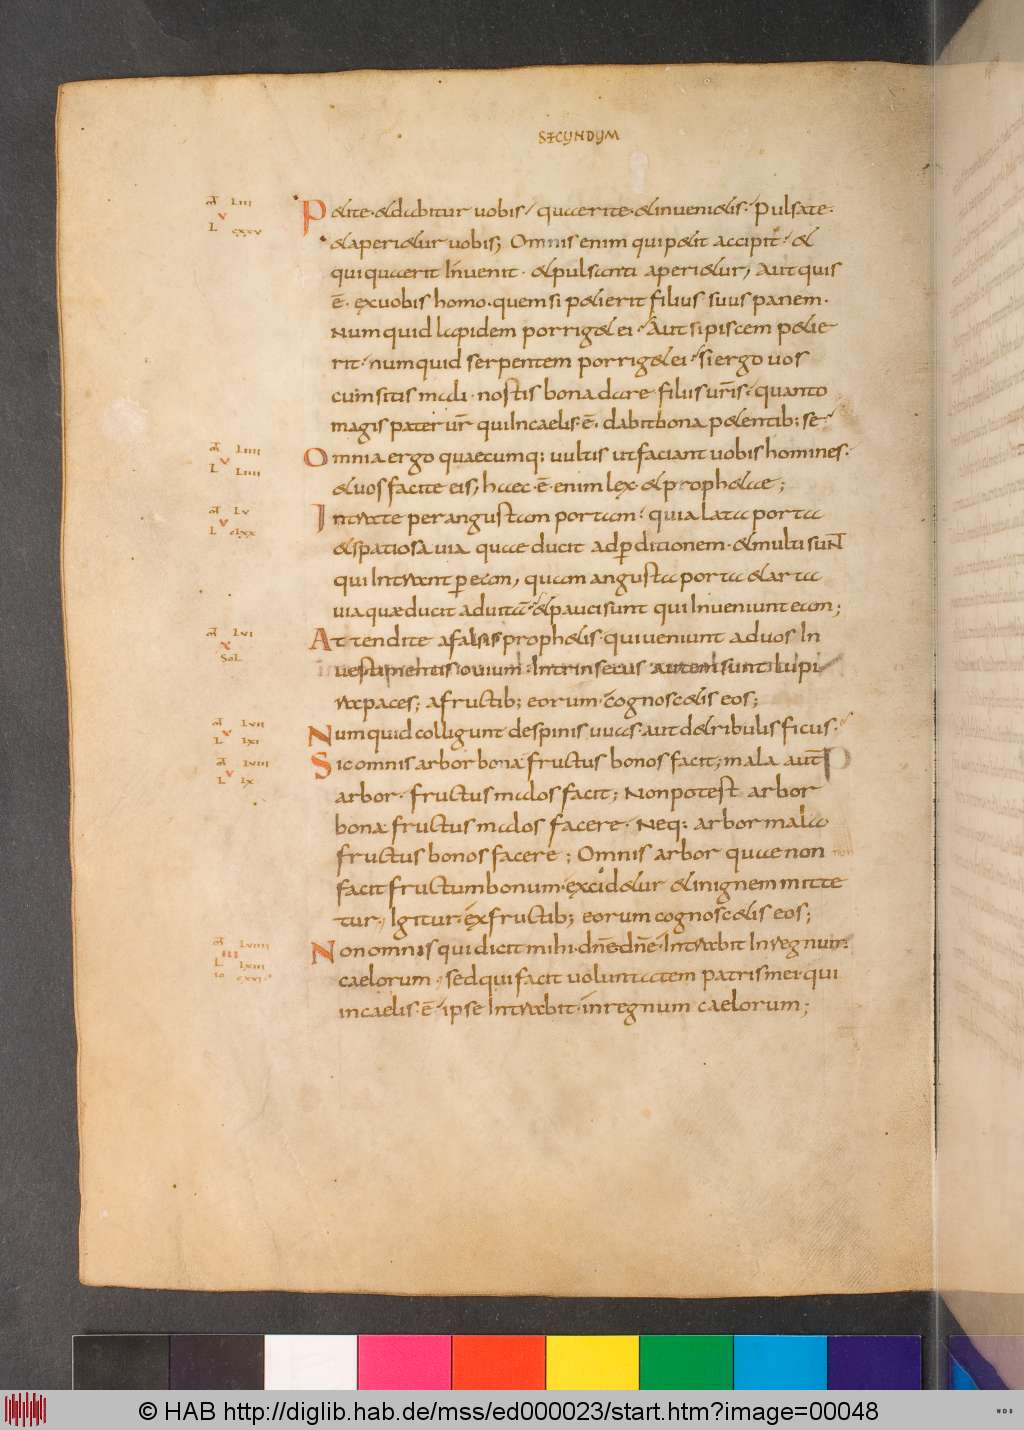 SECUNDUM
m LIII
V
L CXXV
Petite · et dabitur uobis / quaerite · et inuenietis · Pulsate ·
et aperietur uobis; Omnis enim qui petit accipit · et
qui quaerit Inuenit · et pulsanti aperietur, Aut quis
ē · ex uobis homo · quem si petierit filius suus panem ·
Numquid lapidem porriget ei · Aut si piscem petie
rit · numquid serpentem porriget ei · si ergo uos
cum sitis mali · nostis bona dare filiis ur̄is · quanto
magis pater ur̄ qui In caelis · ē · dabit bona petentib; se ·
m LIIII
V
L LIIII
Omnia ergo quaecumq; uultis ut faciant uobis homines ·
et uos facite eis, haec · ē · enim lex · et prophetae;
m LV
V
L
Intrate per angustam portam · quia lata porta
et spatiosa uia quae ducit ad perditionem · et multi sunt
qui Intrant per eam, quam angusta porta et arta
uia quae ducit ad uitā · et pauci sunt qui Inueniunt eam;
m LVI
X
Sol
Attendite a falsis prophetis · qui ueniunt ad uos In
uestimentis ouium · Intrinsecus autem sunt lupi
rapaces; a fructib; eorum · cognoscetis eos;
m LVII
V
L LXI
Numquid colligunt de spinis uuas · aut de tribulis ficus ·
m LVIII
V
L LX
Sic omnis arbor bona fructus bonos facit; mala aut̄
arbor · fructus malos facit; Non potest arbor
bona fructus malos facere · Neq; arbor mala
fructus bonos facere; Omnis arbor quae non
facit fructum bonum · excidetur et in ignem mitte
tur · Igitur · ex fructib; eorum cognoscetis eos;
m LVIIII
III
L LXIII
Io CXVI
Non omnis qui dicit mihi · dn̄e dn̄e · Intrabit In regnum ·
caelorum · sed qui facit uoluntatem patris mei qui
in caelis · ē · ipse Intrabit · in regnum caelorum;
© HAB http://diglib.hab.de/mss/ed000023/start.htm?image=00048